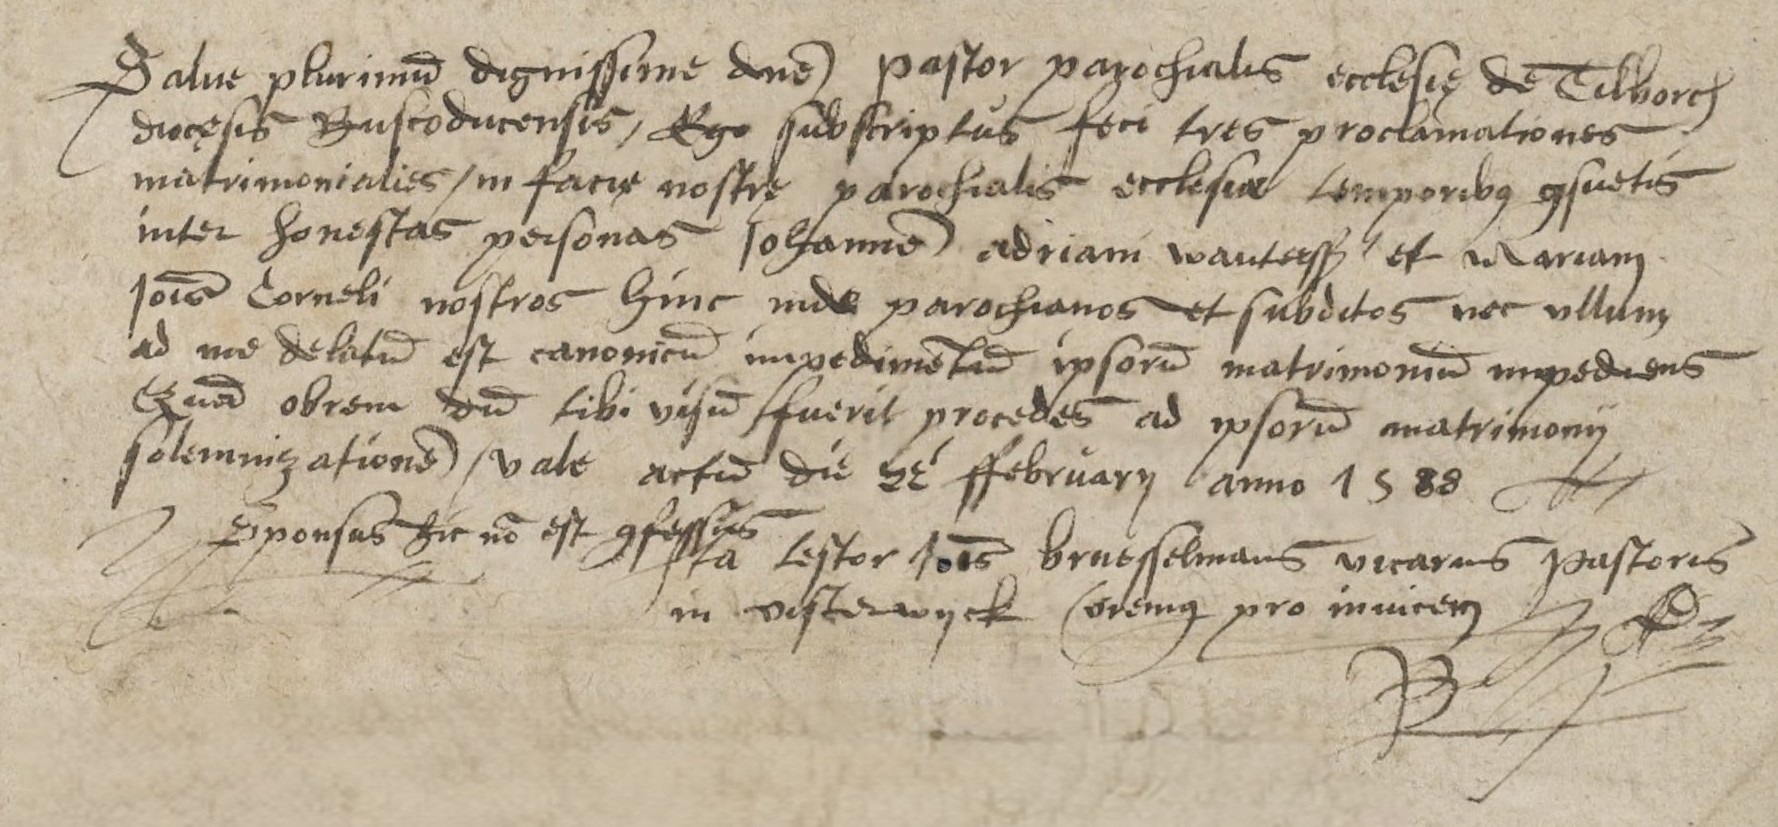 Salue plurimū dignissime dnē pastor parochialis ecclesię de Tilborch
diocęsis Buscoducensis / Ego subscriptus feci tres proclamationes
matrimoniales / in facię nostrę parochialis ecclesiæ temporibꝯ ꝯsuetis
inter honestas personas Johannē adriani wauterss et Mariam
Joīs Corneli nostros hinc inde parochianos et subditos nec vllum
ad me delatū est canonicū impedimētū ipsorū matrimoniū impediens
Quā obrem dū tibi visū ffuerit procedes ad ipsorū matrimonij
solemnizationē / vale actū die 22 ffebruarij anno 1588
Sponsus hic nō est ꝯfessus
Ita testor Joīs bruesselmans vicarius pastoris
in oisterwijck oremꝯ pro inuicem